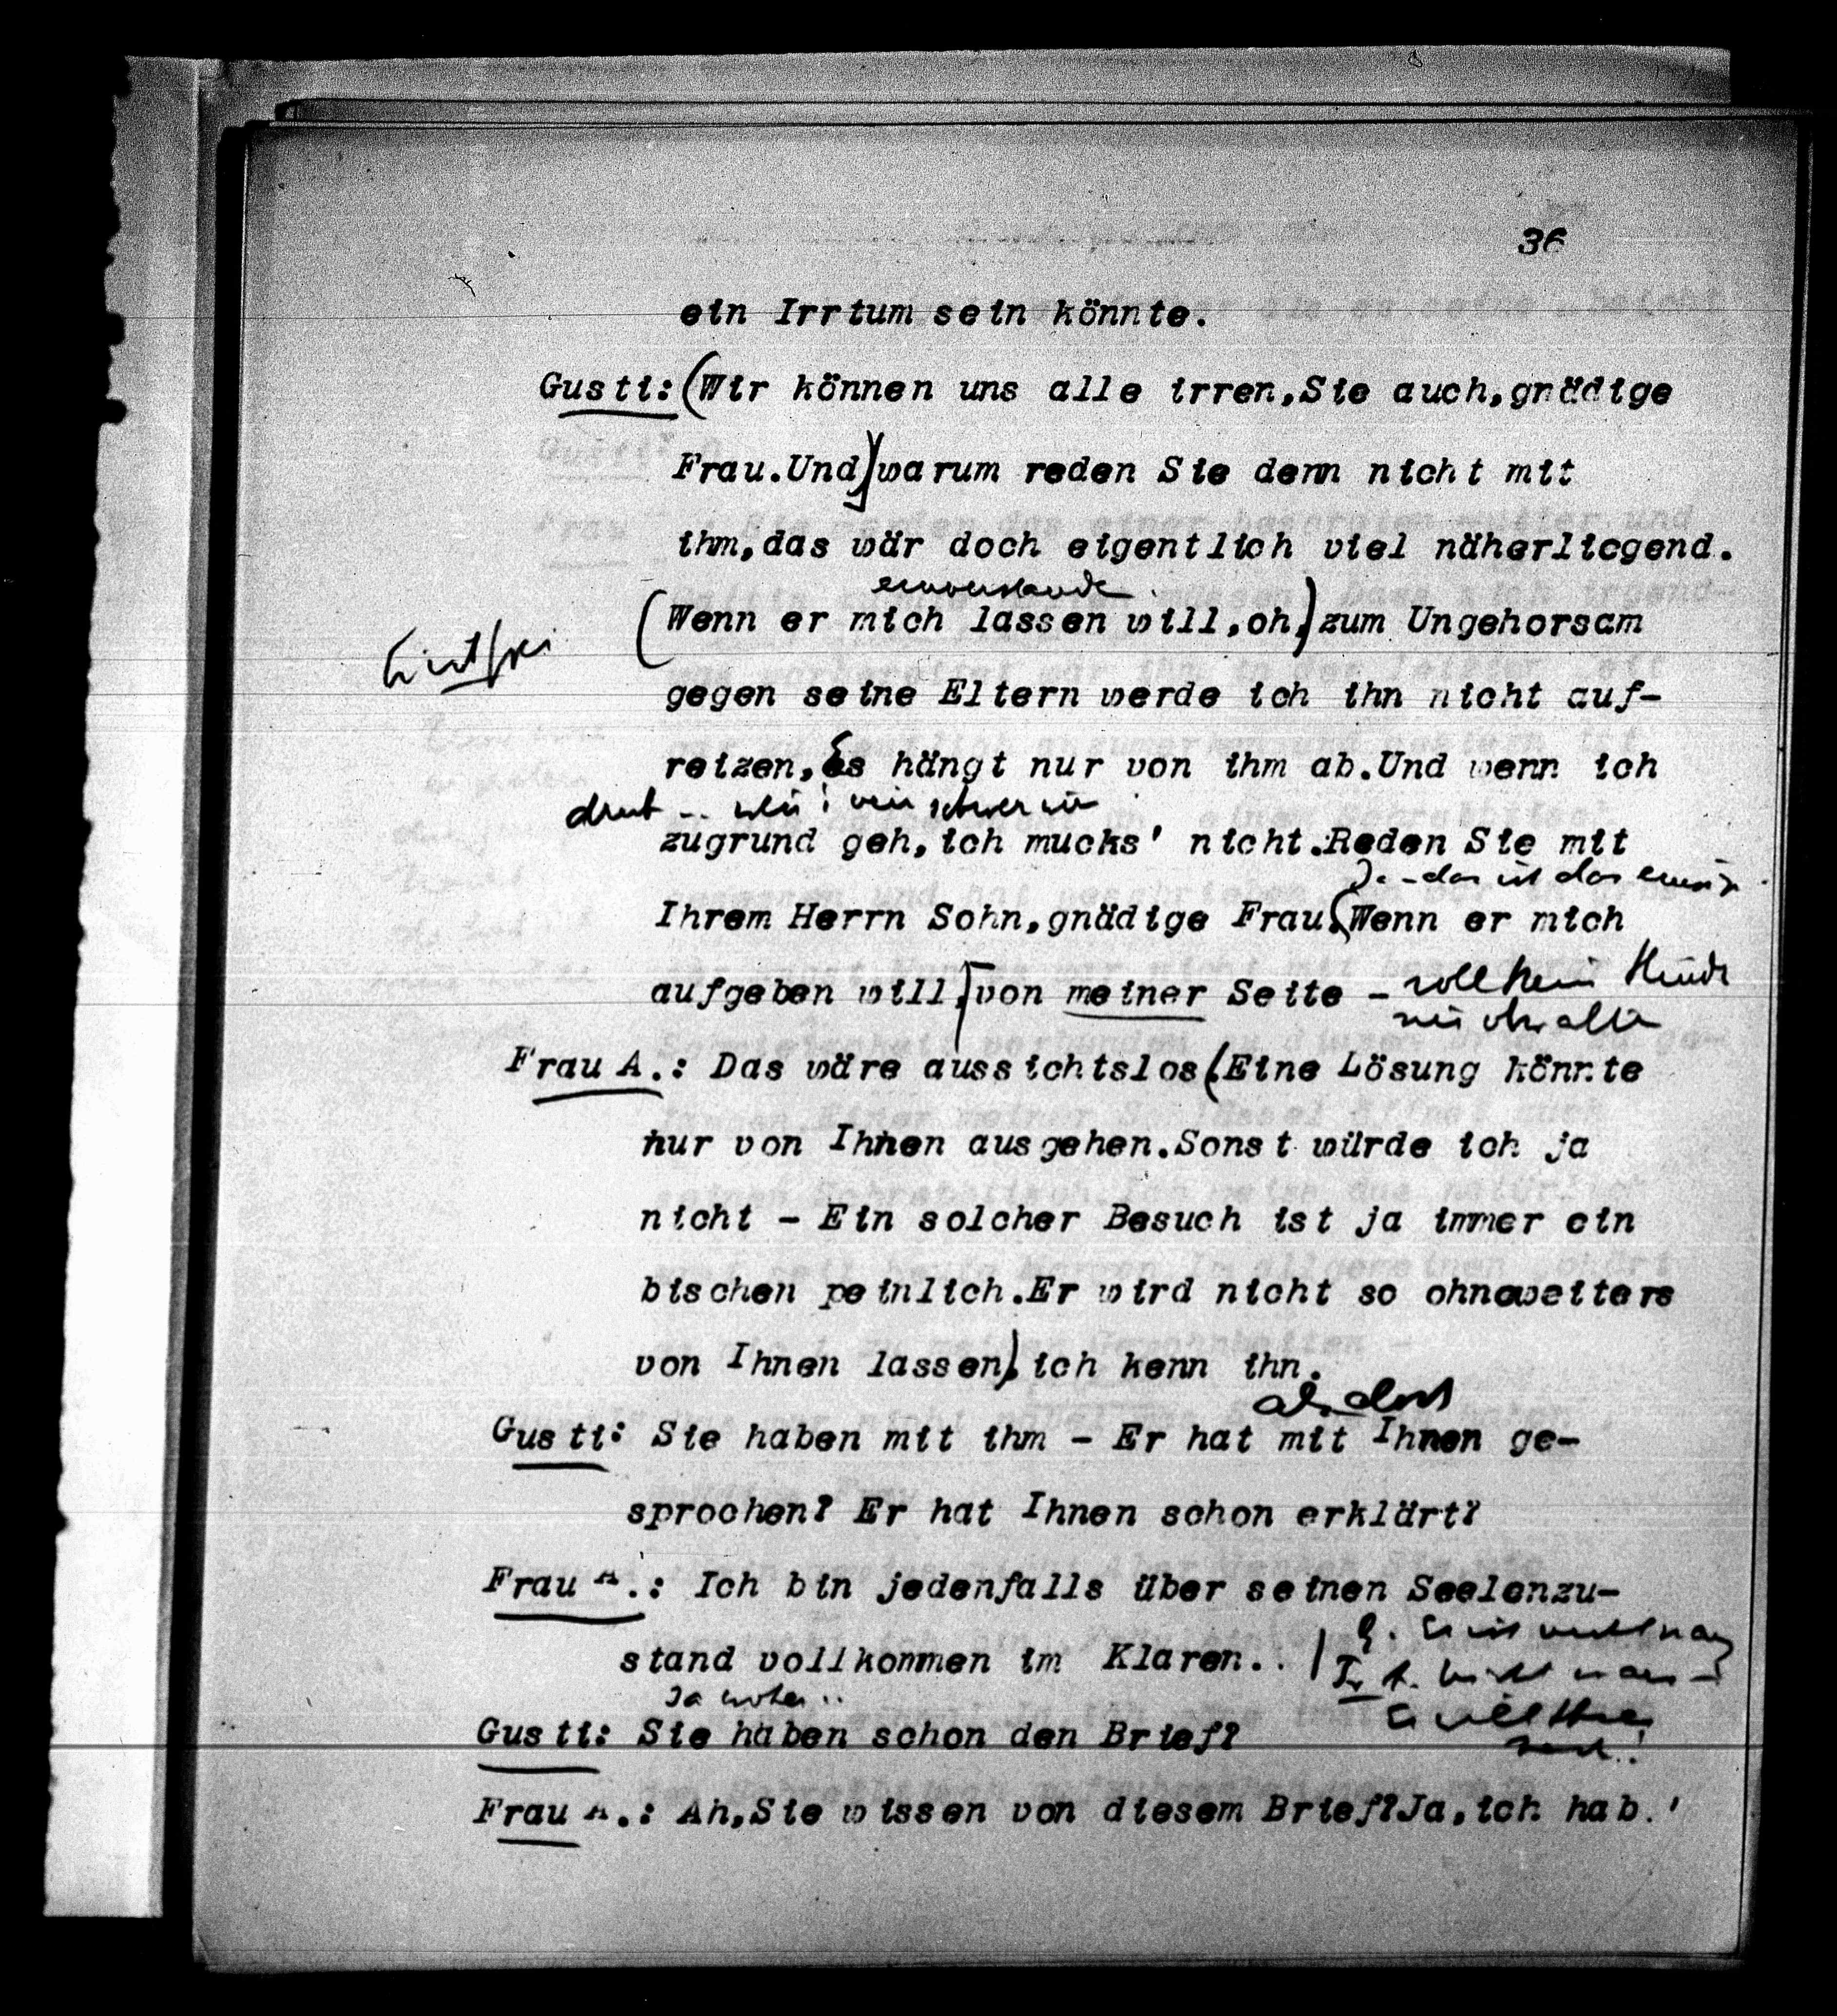 36
ein Irrtum sein könnte.
Gusti: (Wir können uns alle irren,Sie auch,gnädige
Frau.Und) warum reden Sie denn nicht mit
ihm,das wär doch eigentlich viel näherliegend.
(Wenn er mich lassen will,oh,) zum Ungehorsam
gegen seine Eltern werde ich ihn nicht auf-
reizen, Es hängt nur von ihm ab.Und wenn ich
zugrund geh,ich mucks' nicht.Reden Sie mit
Ja - das ist das
Ihrem Herrn Sohn,gnädige Frau.(Wenn er mich
aufgeben will,) von meiner Seite - soll kein
Frau A.: Das wäre aussichtslos.(Eine Lösung könnte
nur von Ihnen ausgehen.Sonst würde ich ja
nicht - Ein solcher Besuch ist ja immer ein
bischen peinlich.Er wird nicht so ohneweiters
von Ihnen lassen), ich kenn ihn.
Gusti: Sie haben mit ihm - Er hat mit Ihnen ge-
sprochen? Er hat Ihnen schon erklärt?
Frau A.: Ich bin jedenfalls über seinen Seelenzu-
stand vollkommen im Klaren..
Gusti: Sie haben schon den Brief?
Frau A.: Ah,Sie wissen von diesem Brief?Ja,ich hab.'